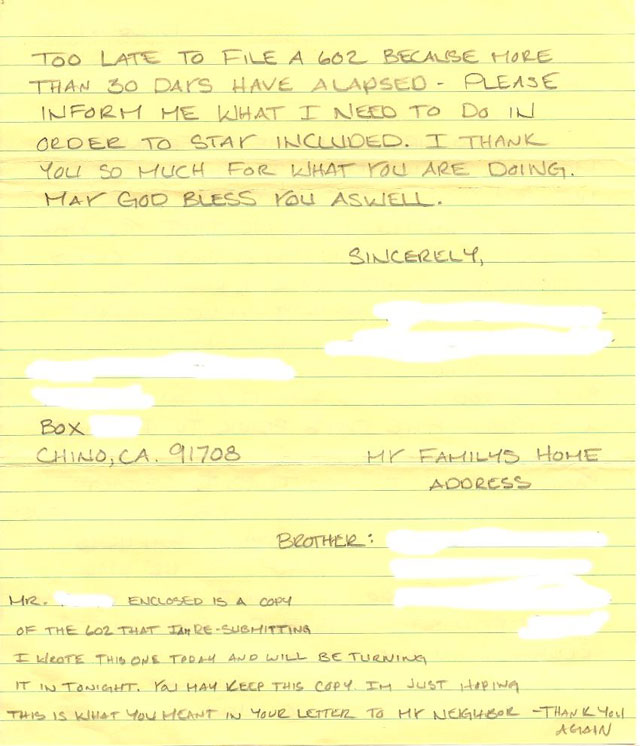 TOO LATE TO FILE A 602 BECAUSE MORE
THAN 30 DAYS HAVE ALAPSED - PLEASE
INFORM ME WHAT I NEED TO DO IN
ORDER TO STAY INCLUDED. I THANK
YOU SO MUCH FOR WHAT YOU ARE DOING.
MAY GOD BLESS YOU ASWELL.
SINCERELY,
BOX
CHINO, CA. 91708
MY FAMILYS HOME
ADDRESS
BROTHER:
MR. ENCLOSED IS A COPY
OF THE 602 THAT I AM RE-SUBMITTING
I WROTE THIS ONE TODAY AND WILL BE TURNING
IT IN TONIGHT. YOU MAY KEEP THIS COPY. IM JUST HOPING
THIS IS WHAT YOU MEANT IN YOUR LETTER TO MY NEIGHBOR - THANK YOU
AGAIN